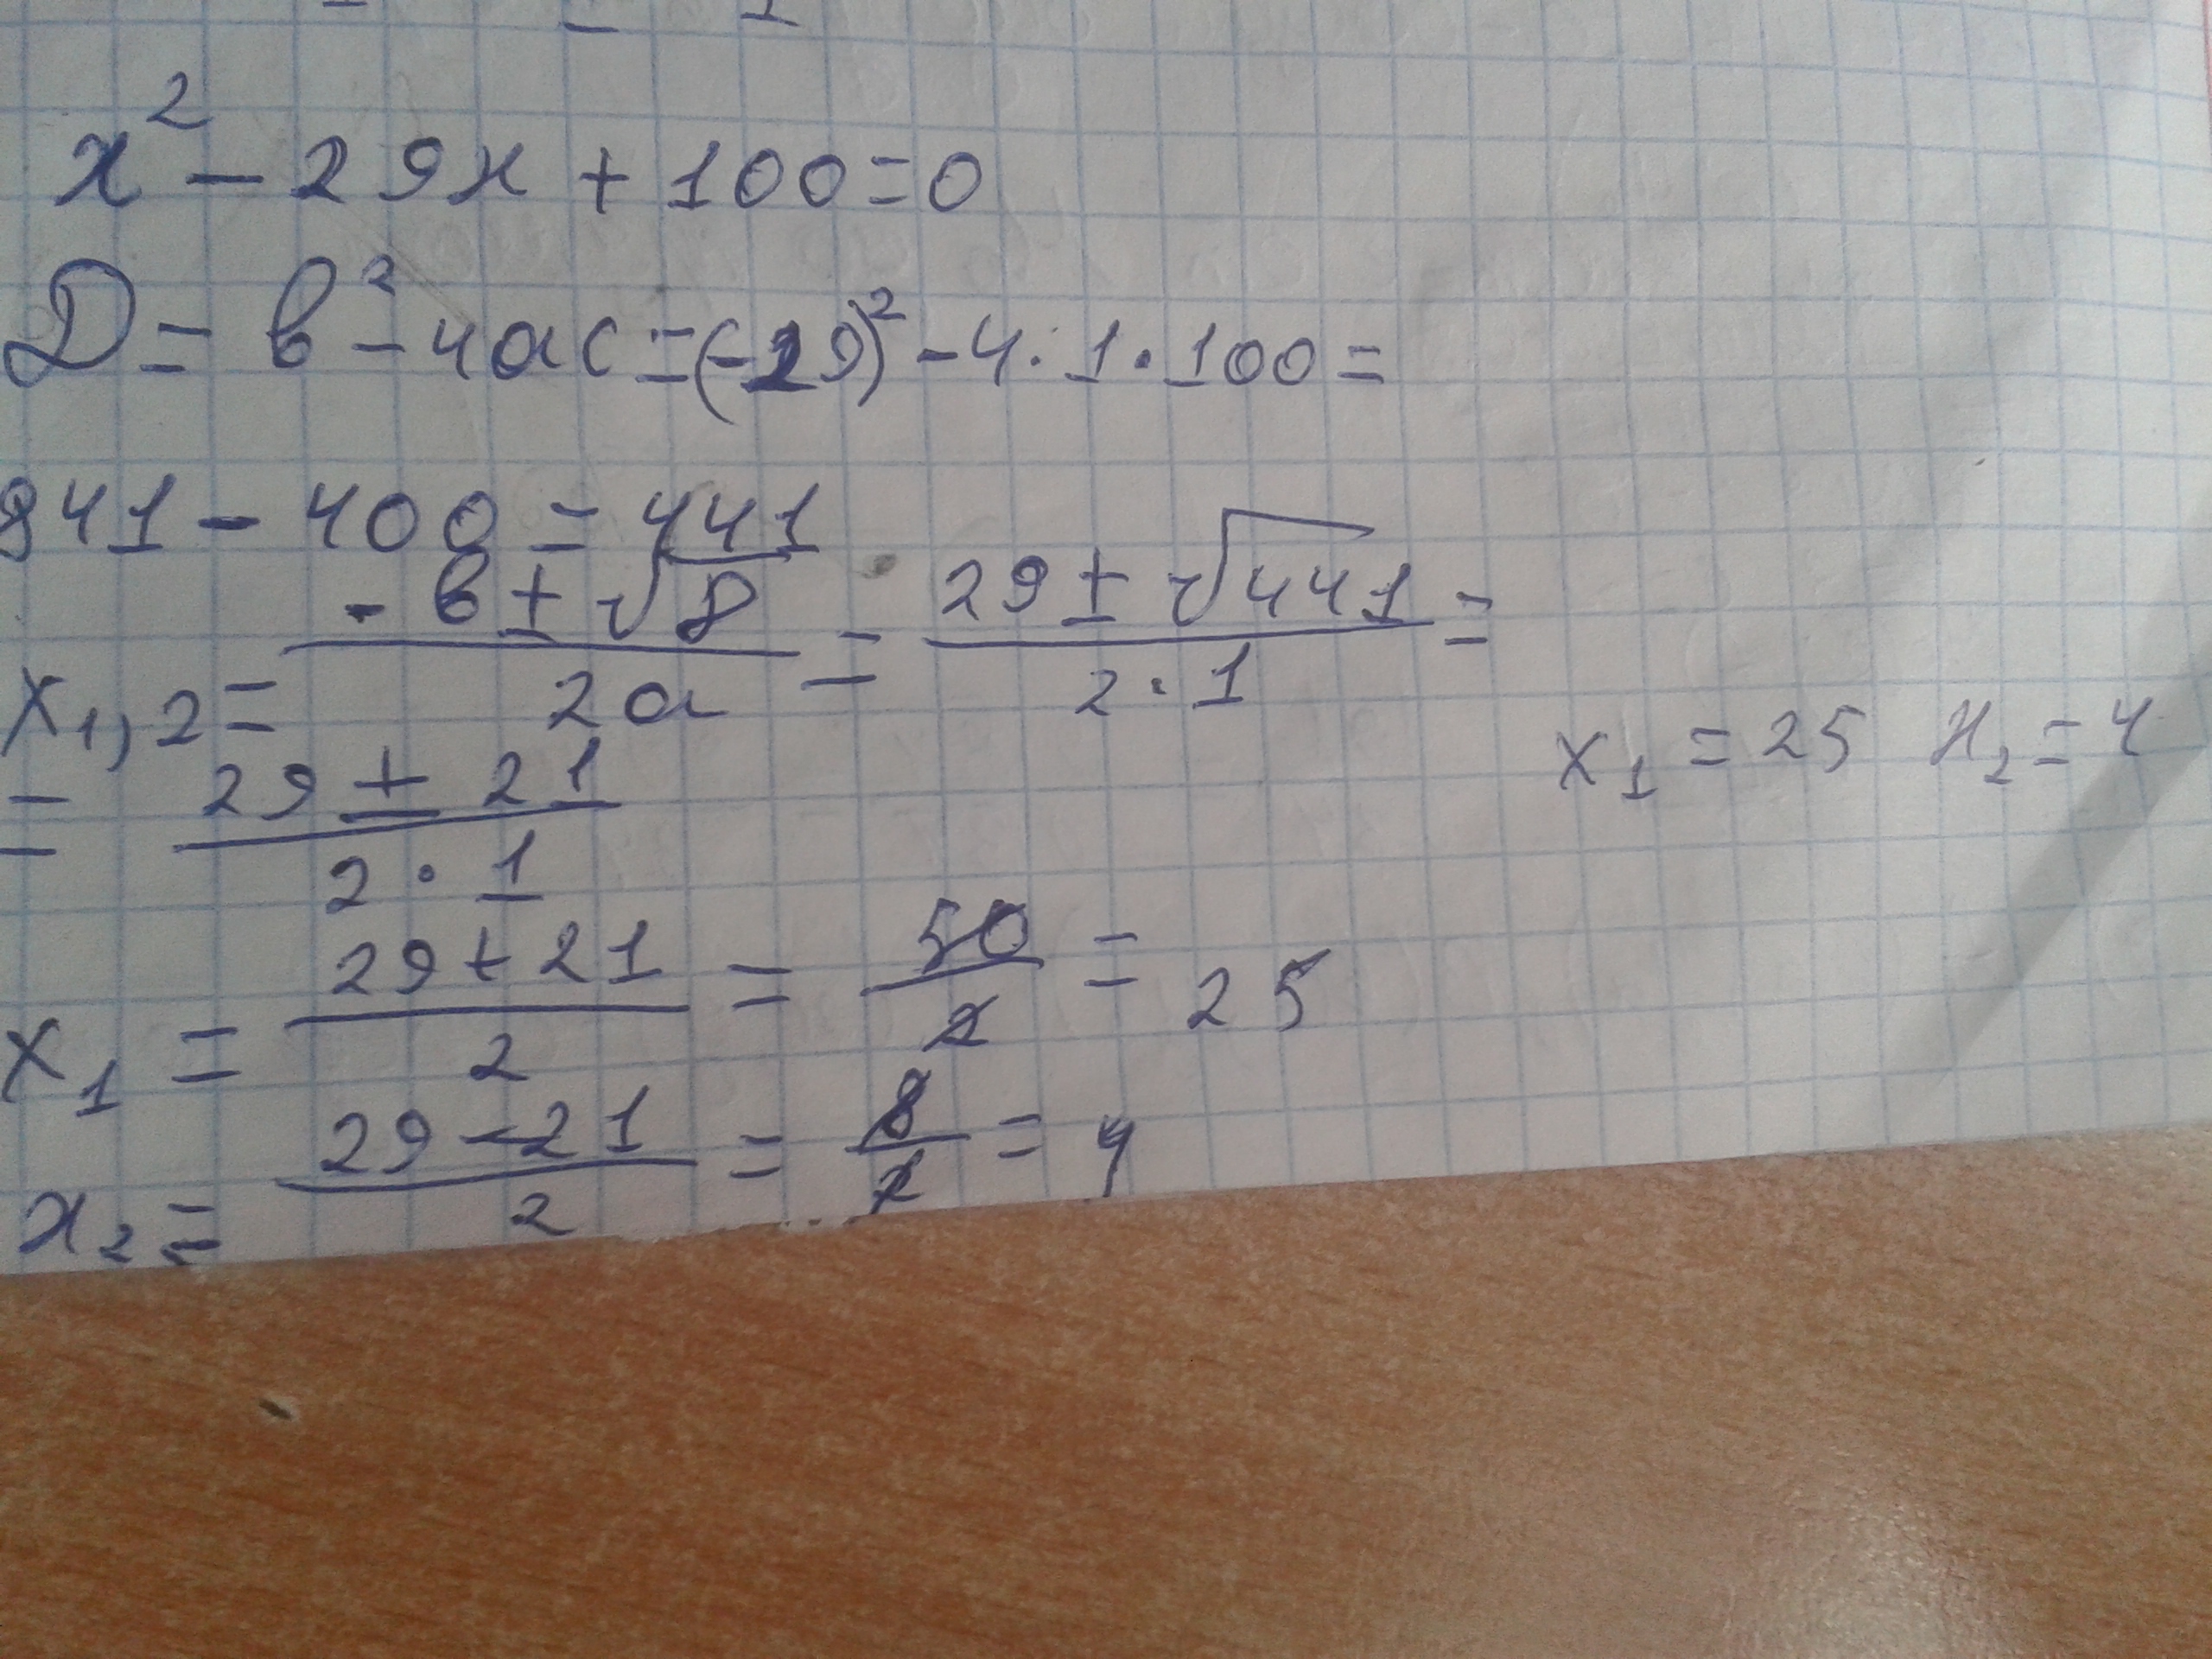 x² - 29x + 100 = 0
D = b² - 4ac = (-29)² - 4 · 1 · 100 =
841 - 400 = 441
x₁,₂ = (-b ± √D) / 2a = (29 ± √441) / (2 · 1) =
= (29 ± 21) / (2 · 1)
x₁ = 25 x₂ = 4
x₁ = (29 + 21) / 2 = 50 / 2 = 25
x₂ = (29 - 21) / 2 = 8 / 2 = 4